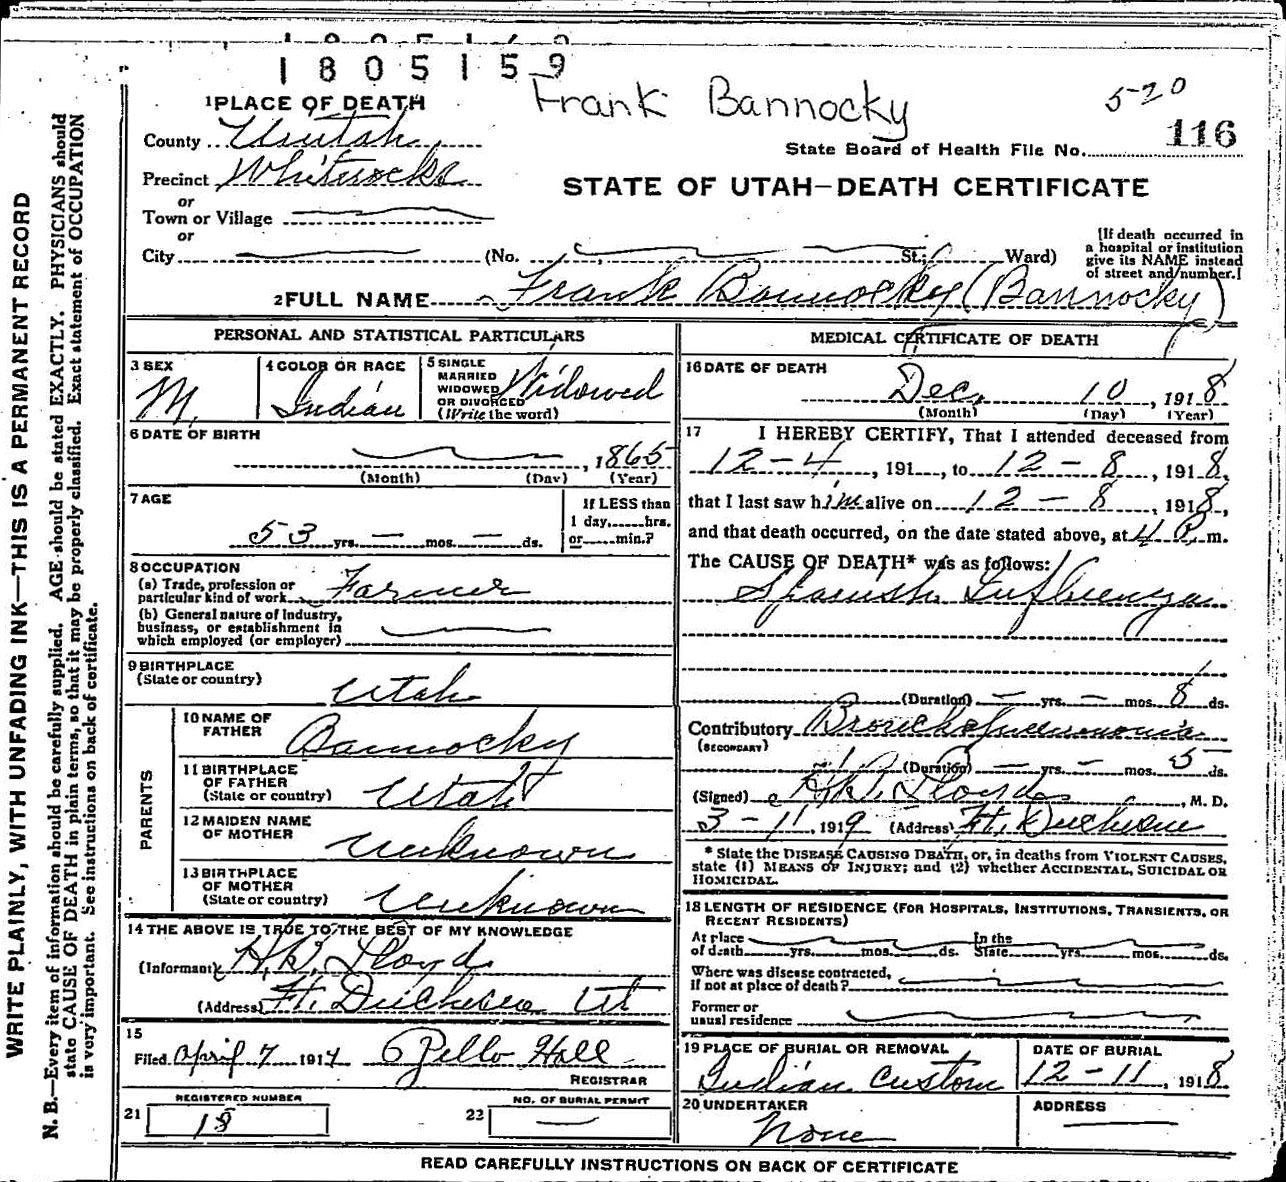 1805159
Frank Bannocky
520
116
State Board of Health File No.
STATE OF UTAH—DEATH CERTIFICATE
1 PLACE OF DEATH
County Uintah
Precinct Whiterocks
or
Town or Village
or
City (No. St.; Ward)
[If death occurred in
a hospital or institution
give its NAME instead
of street and number.]
2 FULL NAME Frank Bannocky (Bannocky)
PERSONAL AND STATISTICAL PARTICULARS
3 SEX
M.
4 COLOR OR RACE
Indian
5 SINGLE
MARRIED
WIDOWED
OR DIVORCED
(Write the word)
Widowed
6 DATE OF BIRTH
, 1865
(Month) (Day) (Year)
7 AGE
53 yrs. — mos. — ds.
If LESS than
1 day, hrs.
or min.?
8 OCCUPATION
(a) Trade, profession or
particular kind of work Farmer
(b) General nature of Industry,
business, or establishment in
which employed (or employer)
9 BIRTHPLACE
(State or country)
Utah
PARENTS
10 NAME OF
FATHER
Bannocky
11 BIRTHPLACE
OF FATHER
(State or country)
Utah
12 MAIDEN NAME
OF MOTHER
Unknown
13 BIRTHPLACE
OF MOTHER
(State or country)
Unknown
14 THE ABOVE IS TRUE TO THE BEST OF MY KNOWLEDGE
(Informant) H.B. Lloyd
(Address) Ft. Duchesne Ut
15
Filed April 7 1914 Zello Hall
REGISTRAR
REGISTERED NUMBER
21
18
NO. OF BURIAL PERMIT
22
—
MEDICAL CERTIFICATE OF DEATH
16 DATE OF DEATH
Dec. 10, 1918
(Month) (Day) (Year)
17 I HEREBY CERTIFY, That I attended deceased from
12-4, 191, to 12-8, 1918,
that I last saw him alive on 12-8, 1918,
and that death occurred, on the date stated above, at 4 P. m.
The CAUSE OF DEATH* was as follows:
Spanish Influenza
(Duration) — yrs. — mos. 8 ds.
Contributory Bronchopneumonia
(SECONDARY)
(Duration) — yrs. — mos. 5 ds.
(Signed) H.B. Lloyd, M. D.
3-11, 1919 (Address) Ft. Duchesne
* State the DISEASE CAUSING DEATH, or, in deaths from VIOLENT CAUSES,
state (1) MEANS OF INJURY; and (2) whether ACCIDENTAL, SUICIDAL OR
HOMICIDAL.
18 LENGTH OF RESIDENCE (FOR HOSPITALS, INSTITUTIONS, TRANSIENTS, OR
RECENT RESIDENTS)
At place
of death yrs. mos. ds.
In the
State yrs. mos. ds.
Where was disease contracted,
if not at place of death?
Former or
usual residence
19 PLACE OF BURIAL OR REMOVAL
Indian Custom
DATE OF BURIAL
12-11, 1918
20 UNDERTAKER
None
ADDRESS
READ CAREFULLY INSTRUCTIONS ON BACK OF CERTIFICATE
WRITE PLAINLY, WITH UNFADING INK—THIS IS A PERMANENT RECORD
N. B.—Every item of information should be carefully supplied. AGE should be stated EXACTLY. PHYSICIANS should
state CAUSE OF DEATH in plain terms, so that it may be properly classified. Exact statement of OCCUPATION
is very important. See instructions on back of certificate.